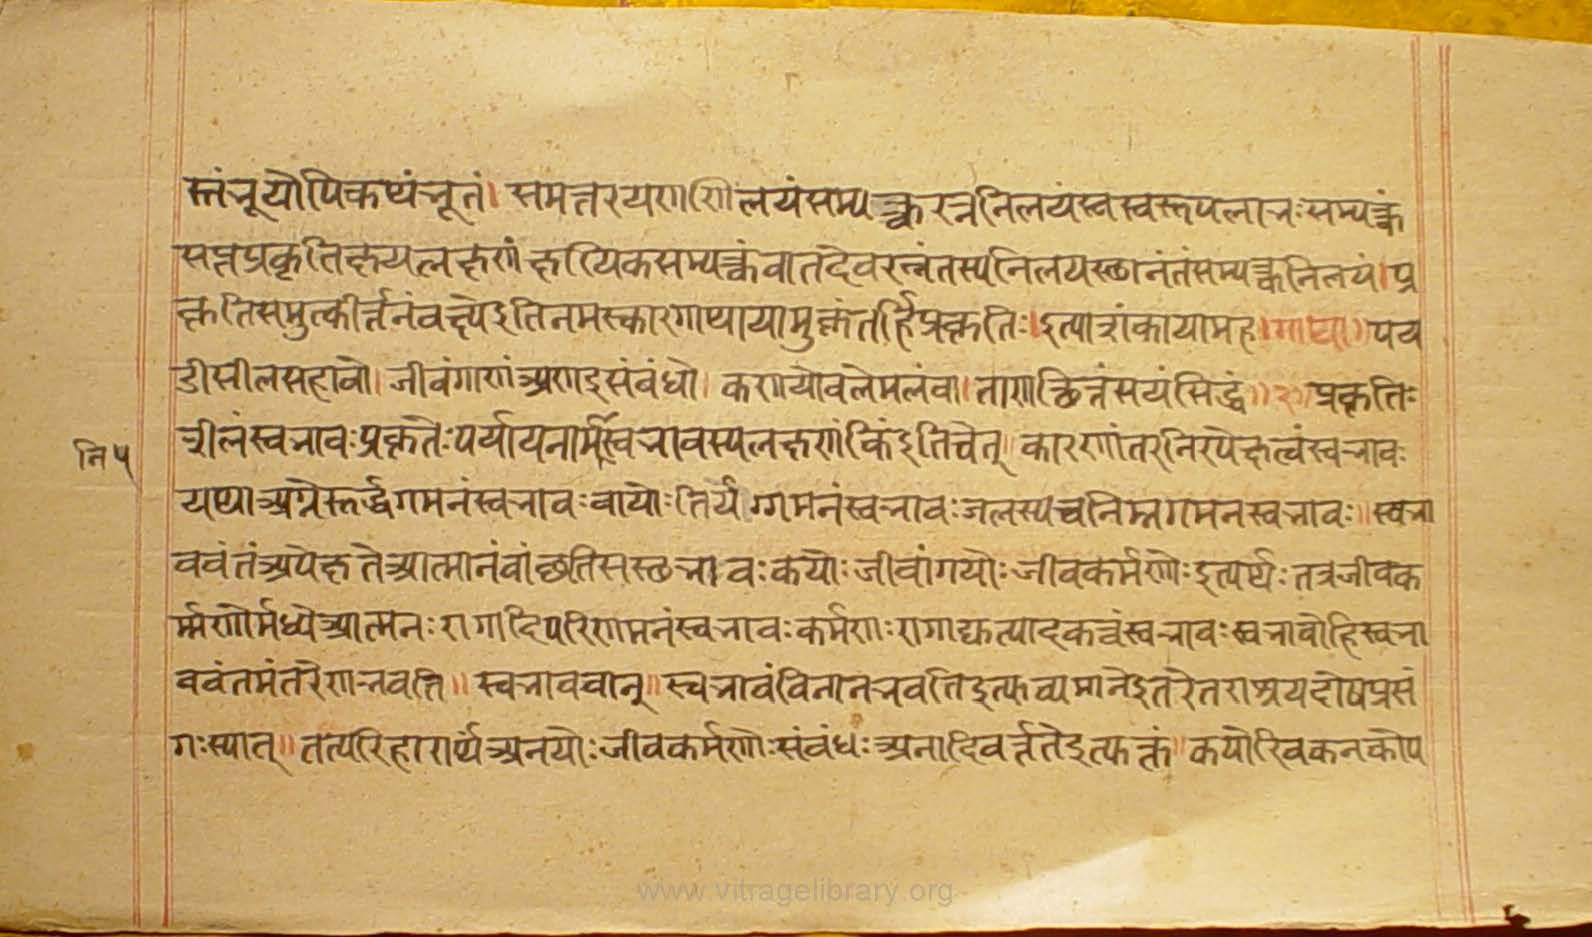 स्तंभूयोपिकथंभूतं। समत्तरयणणिलयंसम्यक्त्वरत्ननिलयंस्वस्वरूपलाभःसम्यक्त्वं
सप्तप्रकृतिक्षयलक्षणंक्षायिकसम्यक्त्वंवातदेवरत्नंतस्यनिलयस्थानंतंसम्यक्त्वनिलयं।प्र
कृतिसमुत्कीर्त्तनंवक्ष्येइतिनमस्कारगाथायामुक्तंतर्हिप्रकृतिः।इत्याशंकायामह।गाथा।पय
डीसीलसहावो।जीवंगाणंअणाइसंबंधो।कणयोवलेमलंवा।ताणात्थित्तंसयंसिद्धं॥२॥प्रकृतिः
शीलंस्वभावःप्रकृतेःपर्यायनामस्वभावस्यलक्षणंकिंइतिचेत्॥कारणांतरनिरपेक्षत्वंस्वभावः
नि५
यथाअग्नेरूर्द्धगमनंस्वभावःवायोःतिर्यग्गमनंस्वभावःजलस्यचनिम्नगमनस्वभावः॥स्वभा
ववंतंअपेक्षतेआत्मानंवांछतिसस्छभावःकयोःजीवांगयोःजीवकर्मणोःइत्यर्थःतत्रजीवक
र्म्मणोर्मध्येआत्मनःरागादिपरिणमनंस्वभावःकर्मणःरागाद्युत्पादकत्वंस्वभावःस्वभावोहिस्वभा
ववंतमंतरेणनभवति॥स्वभाववान्॥स्वभावंविनानभवतिइत्युच्यमानेइतरेतराश्रयदोषप्रसं
गःस्यात्॥तत्परिहारार्थंअनयोःजीवकर्मणोःसंबंधःअनादिवर्त्ततेइत्युक्तं॥कयोरिवकनकोप
www.vitragelibrary.org